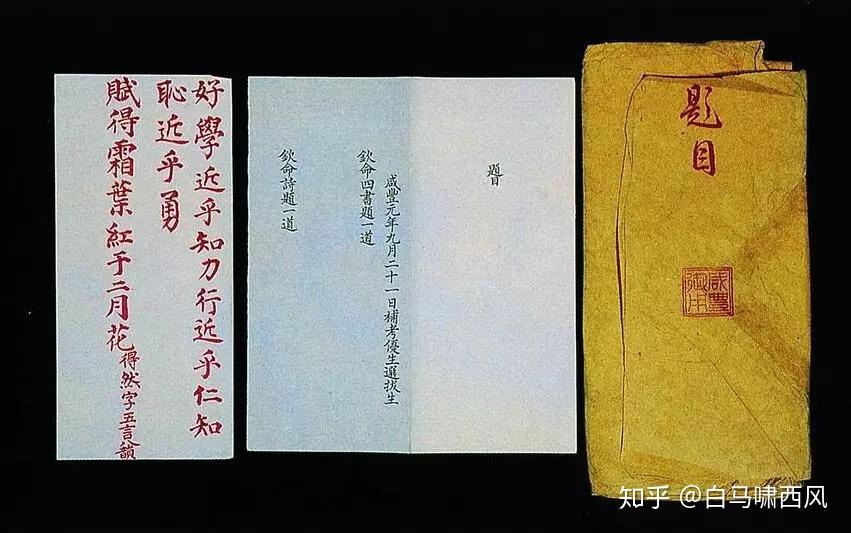 題目
咸豐御用
題目
咸豐元年九月二十一日補考優生選拔生
欽命四書題一道
欽命詩題一道
好學近乎知力行近乎仁知
恥近乎勇
賦得霜葉紅于二月花得然字五言八韻
知乎 @白马啸西风